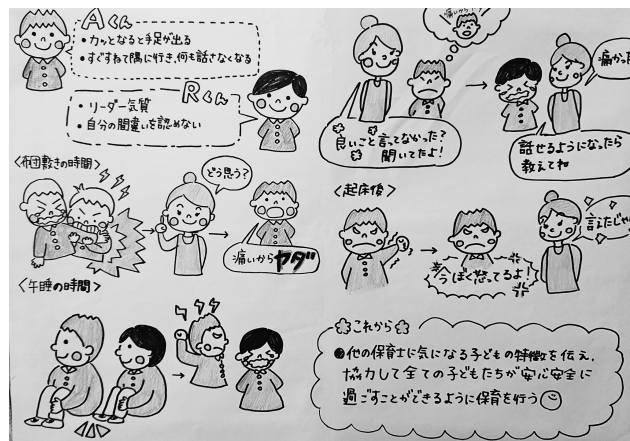 Aくん
• カッとなると手足が出る
• すぐすねて隅に行き、何も話さなくなる
Rくん
• リーダー気質
• 自分の間違いを認めない
<布団敷きの時間>
どう思う?
痛いからヤダ
<午睡の時間>
痛いから!
良いこと言ってなかった?
聞いてたよ!
痛かっ
話せるようになったら
教えてね
<起床後>
今ぼく怒ってるよ!
言えたじゃ
これから
●他の保育士に気になる子どもの特徴を伝え、
協力して全ての子どもたちが安心安全に
過ごすことができるように保育を行う